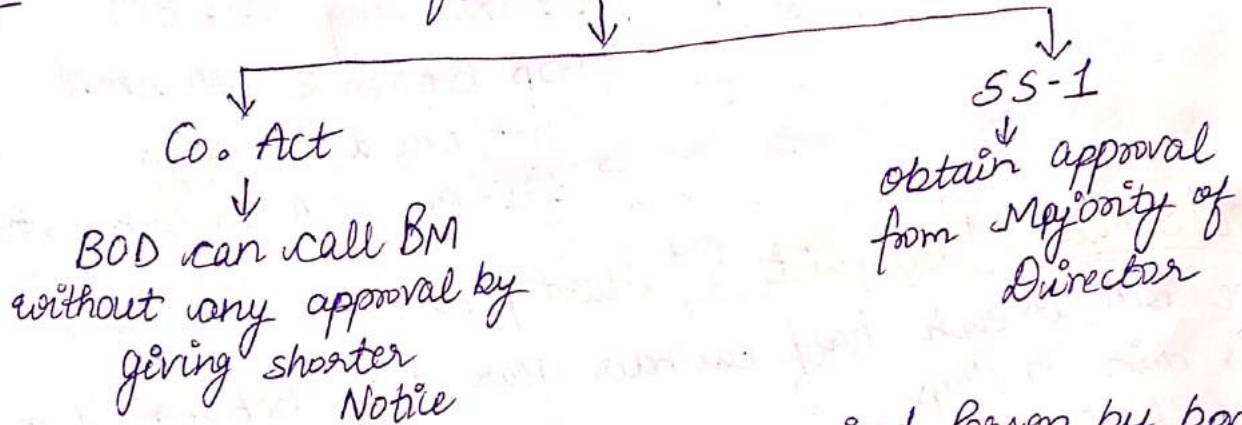 Co. Act
BOD can call BM
without any approval by
giving shorter
Notice
SS-1
obtain approval
from Majority of
Director
Person by